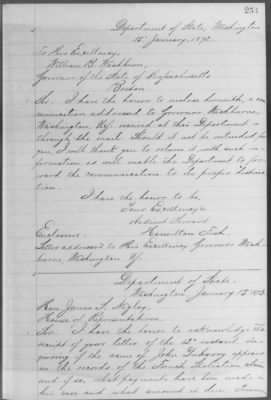 254
Department of State, Washington
15 January, 1873.
To His Excellency,
William B. Washburn,
Governor of the State of Massachusetts
Boston
Sir: I have the honor to enclose herewith, a com
munication addressed to Governor Washburne,
Washington, received at this Department
through the mail. Should it not be intended for
you, I will thank you to return it with such in-
formation as will enable the Department to for-
ward the communication to its proper destina
tion.
I have the honor to be,
Your Excellency's
Obedient Servant
Hamilton Fish.
Enclosure:
Letter addressed to His Excellency Governor Wash-
burne, Washington,
Department of State
Washington January 15, 1873.
Hon. James S. Negley,
House of Representatives.
Sir: I have the honor to acknowledge the
receipt of your letter of the instant in
quiring if the name of John appears
on the records of the French Spoliation
and if so, what payments have been made in
his case and what amount is due.